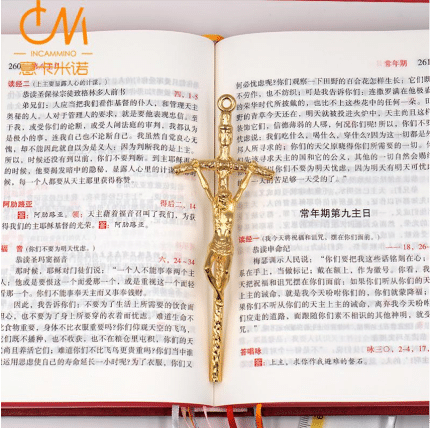 INCAMMINO
意卡米诺
260
读经二(主要显露人心的计谋。)
恭读圣保禄宗徒致格林多人前书 四,1-5
弟兄们:人应当把我们看作基督的仆人,和管理天主
奥秘的人。人对于管理人的要求,就是要他表现忠信。至
于我,或受你们的论断,或受人间法庭的审判,我都认为
是极小的事,连我自己也不论断自己,我虽然自觉良心无
愧,却不能因此就自以为是义人;因为判断我的是上主。
所以,时候还没有到前,你们不要判断
的时候,他要揭发暗中的隐秘,
时,每一个人都要从天主那里获得称赞。
阿肋路亚 得后二,14
答:阿肋路亚。领:天主藉福音召叫了我们,为获
得我们的主耶稣基督的光荣。答:阿肋路亚。
福音(你们不要为明天忧虑。)
恭读圣玛窦福音 六,24-34
那时候,耶稣对门徒们说:“一个人不能事奉两个主
人:他或是要恨这一个而爱那一个,或是重视这一个而轻
那一个。你们不能事奉天主而又事奉钱财。
因此,我告诉你们:不要为了生活上所需要的饮食而
忧虑,也不要为了身上所要穿的衣着而忧虑。难道生命不
比食物重要,身体不比衣服重要吗?你们仰观天空的飞鸟,
它们既不播种,也不收获,也不在粮仓里屯积,你们的天
父尚且养活它们;难道你们不比飞鸟更贵重吗?你们当中谁
能运用思虑使自己的寿命延长一小时呢?为了衣服,你们又
常年期 261
何必忧虑呢?你们观察一下田野的百合花怎样生长;它们既
不劳作,也不纺织;可是我告诉你们:连撒罗满在他极盛的
荣华时代所披戴的,也比不上这些花中的任何一朵。田
野的青草今天还在,明天就被投进火炉中,天主尚且这样
装饰它们,信德薄弱的人哪,何况你们呢!所以,你们不要
忧虑说:我们吃什么,喝什么,穿什么?因为这一切都是外
邦人所寻求的;你们的天父原晓得你们所需要的一切。你们
常年期第九主日
读经一(我今天将祝福和诅咒,摆在你们面前。)
恭读申命纪 18,26
梅瑟训示人民说:“你们要把我这些话铭刻在心;系
在手上,当做标记;戴在额上,作为徽号。你看,我
天把祝福和诅咒都摆在你们面前:如果你们听从你们的天
上主的诫命,就是我今天吩咐你们的,你们就蒙降福;如
果你们不听从你们的天主上主的诫命,离弃我今天吩咐你
们应走的道路,而跟随你们素不相识的其他神明,就受诅
咒。
答唱咏 咏三〇,2-4,17
答:上主,求你作我避难的磐石。